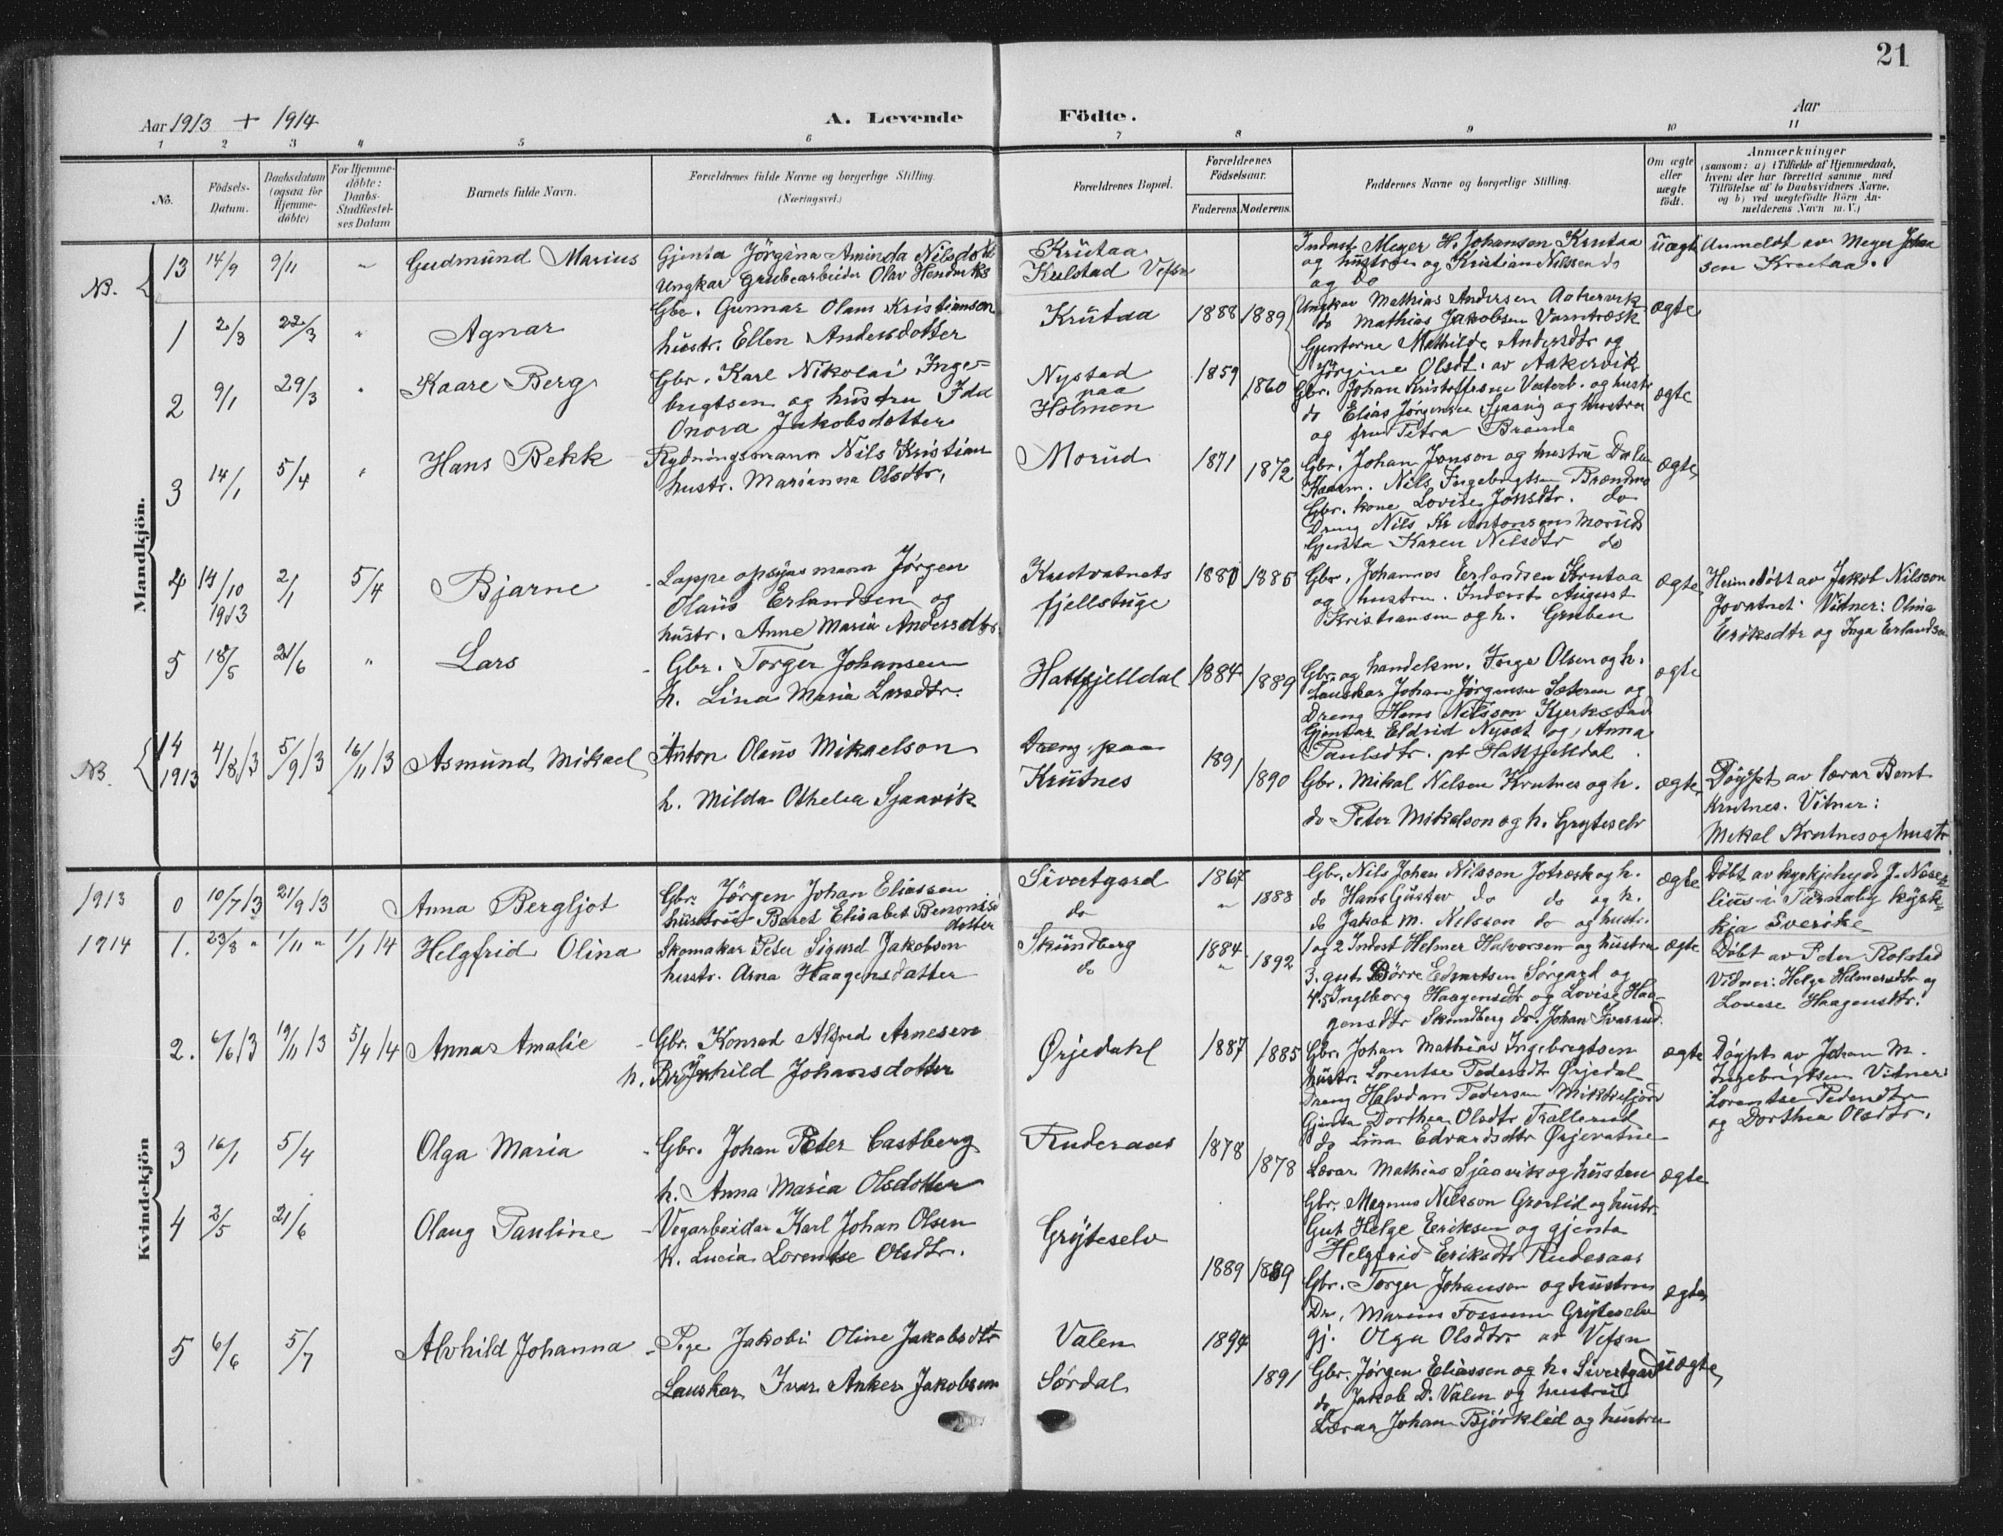 21
Aar 1913 + 1914
A. Levende Födte.
Aar
1 2 3 4 5 6 7 8 9 10 11
No.
Födsels-Datum.
Daabsdatum (ogsaa for Hjemmedöbte)
For Hjemmedöbte: Daabs-Stadfæstelses Datum
Barnets fulde Navn.
Forældrenes fulde Navne og borgerlige Stilling. (Næringsvei.)
Forældrenes Bopæl.
Forældrenes Födselsaar.
Faderens. Moderens.
Faddernes Navne og borgerlige Stilling.
Om ægte eller uægte födt.
Anmærkninger
(saasom: a) i Tilfælde af Hjemmedaab, hvem der har forrettet samme med Tilföielse af to Daabsvidners Navne, og b) ved uegtefödte Börn Anmelderens Navn m.V.)
Mandkjön.
NB. 13 14/9 9/11 " Gudmund Marius
Gjenta Jörgina Aminda Nilsdtr
Ungkar Grubearbeider Olav Hendriks
Krutaa
Kulstad Vefsn
Inderst Meyer H. Johansen Krutaa
og hustru og Kristian Nilssen do
og do
uægte
Anmeldt av Meyer Johan
sen Krutaa.
1 2/3 22/3 " Agnar
Gbr. Gunnar Olaus Kristianson
hustr. Ellen Andersdotter
Krutaa
1888 1889
Ungkar Mathias Andersen Aakervik
do Mathias Jakobsen Varntræsk
Gjenterne Mathilde Andersdtr og
Jörgine Olsdt. av Aakervik
ægte
2 9/1 29/3 " Kaare Berg
Gbr. Karl Nikolai Inge-
brigtsen og hustru Ida
Onora Jakobsdotter
Nystad
paa
Holmen
1859 1860
Gbr. Johan Kristoffersen Vesterb. og hustr
do Elias Jörgensen Sjaavig og hustru
og fru Petra Brenna
ægte
3 14/1 5/4 " Hans Bekk
Rydningsmann Nils Kristian
hustr. Marianna Olsdtr.
Morud
1871 1872
Gbr. Johan Jonson og hustru Dalen
Kaarm. Nils Ingebrigtsen Brændmo
Gbr. kone Lovise Jonsdtr. do
Dreng Nils Kr Antonsen Morud
Gjenta Karen Nilsdtr do
ægte
4 14/10 1913 2/1 5/4 Bjarne
Lappeopsynsmann Jörgen
Olaus Erlandsen og
hustr. Anne Maria Andersdtr.
Krutvatnets
fjellstuge
1880 1885
Gbr. Johannes Erlandsen Krutaa
og hustru. Inderst August
Kristiansen og h. Gruben
ægte
Heimedöbt av Jakob Nilsson
Jovatnet. Vitner: Olina
Eriksdtr og Inga Erlandsen
5 18/5 21/6 " Lars
Gbr. Torger Johansen
h. Lina Maria Larsdtr.
Hattfjelldal
1884 1889
Gbr. og handelsm. Olsen og h.
Lauskar Johan Jörgensen Sæteren og
Dreng Hans Nilsson Kjerkstad
Gjentor Eldrid Nysæt og Anna
Paulsdtr. pt Hattfjelldal.
ægte
NB 14 1913 4/8 13 5/9 13 16/11 13 Asmund Mikael
Anton Olaus Mikaelson
h. Milda Othelia Sjaavik
Dreng paa
Krutnes
1891 1890
Gbr. Mikal Nelsen Krutnes og h.
do Peter Mikalson og h. Gryteselv
ægte
Döypt av lærar Bent
Krutnes. Vitner:
Mekal Krutnes og hustr
Kvindekjön
1913 0 10/7 13 21/9 13 Anna Bergljot
Gbr. Jörgen Johan Eliassen
hustru Beret Elisabet Benonisdotter
Sivertgard
do
1867 " 1888
Gbr. Nils Johan Nilsson Jotræsk og h.
do Hans Gustav do do og h.
do Jakob M. Nilsson do og hustr.
ægte
Döbt av kyrkjeheyde J. Nese-
lius i Tärnaby kyrk-
kja Sverike
1914 1. 23/8 " 1/11 " 1/1 14 Helgfrid Olina
Skomakar Peter Sigurd Jakobsen
hustr. Arna Haagensdatter
Skundberg
do
1884 " 1892
1 og 2 Indest Helmer Halvorsen og hustru
3. gut. Börre Edvartsen Sörgard og
4.5 Ingeborg Haagensdtr og Lovise Haa-
gensdtr Skundberg do. Johan Ivasrud.
ægte
Döbt av Peter Rolstad
Vidner: Helge Helmersdtr og
Lovise Haagensdtr.
2. 6/6 13 19/11 13 5/4 14 Anna Amalie
Gbr. Konrad Alfred Arnesen
h. Brynhild Johansdotter
Ørjedahl
1887 1885
Gbr. Johan Mathias Ingebregtsen
hustr. Lorentse Pedersdtr Ørjedal
Dreng Halvdan Pedersen Mikkelfjord
Gjenta Dorthea Olsdtr
do Lina Edvardsdtr Ørjevatne
ægte
Döypt av Johan M.
Ingebrigtsen Vitner:
Lorentse Pedersdtr
og Dorthea Olsdtr.
3 16/1 5/4 Olga Maria
Gbr. Johan Peter Castberg
h. Anna Maria Olsdotter
Ruderaas
1878 1878
Lærar Mathias Sjaavik og hustru
Gbr. Magnus Nilsson Grönlid og hustr.
Gut Helge Eriksen og gjenta
Helgfrid Eriksdtr Ruderaas
ægte
4 2/5 21/6 Olaug Pauline
Vegarbeidar Karl Johan Olsen
h. Lucia Lorentse Olsdtr.
Gryteselv
1889 1889
Gbr. Torger Johanson og hustru
Dr. Marius Fossum Gryteselv
gj. Olga Olsdtr av Vefsn
ægte
5 6/6 5/7 Alvhild Johanna
Pige Jakobi Oline Jakobsdtr
Lauskar Ivar Anker Jakobsen
Valen
Sørdal
1894 1891
Gbr. Jørgen Eliassen og h. Sivertgard
do Jakob D. Valen og hustru
Lærar Johan Bjørklid og hustru
uægte